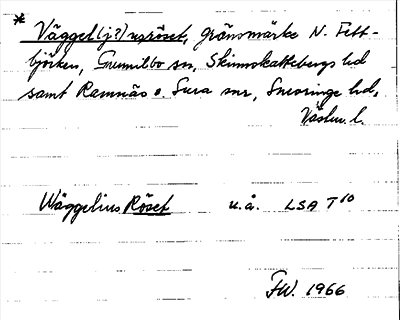 * Väggel(j?)usröset, gränsmärke N. Fett-
björken, Gunnilbo sn, Skinnskattebergs hd
samt Ramnäs o. Sura snr, Snevringe hd,
Västm. l.
Wäggelius Röset u.å. LSA T10
F.W. 1966